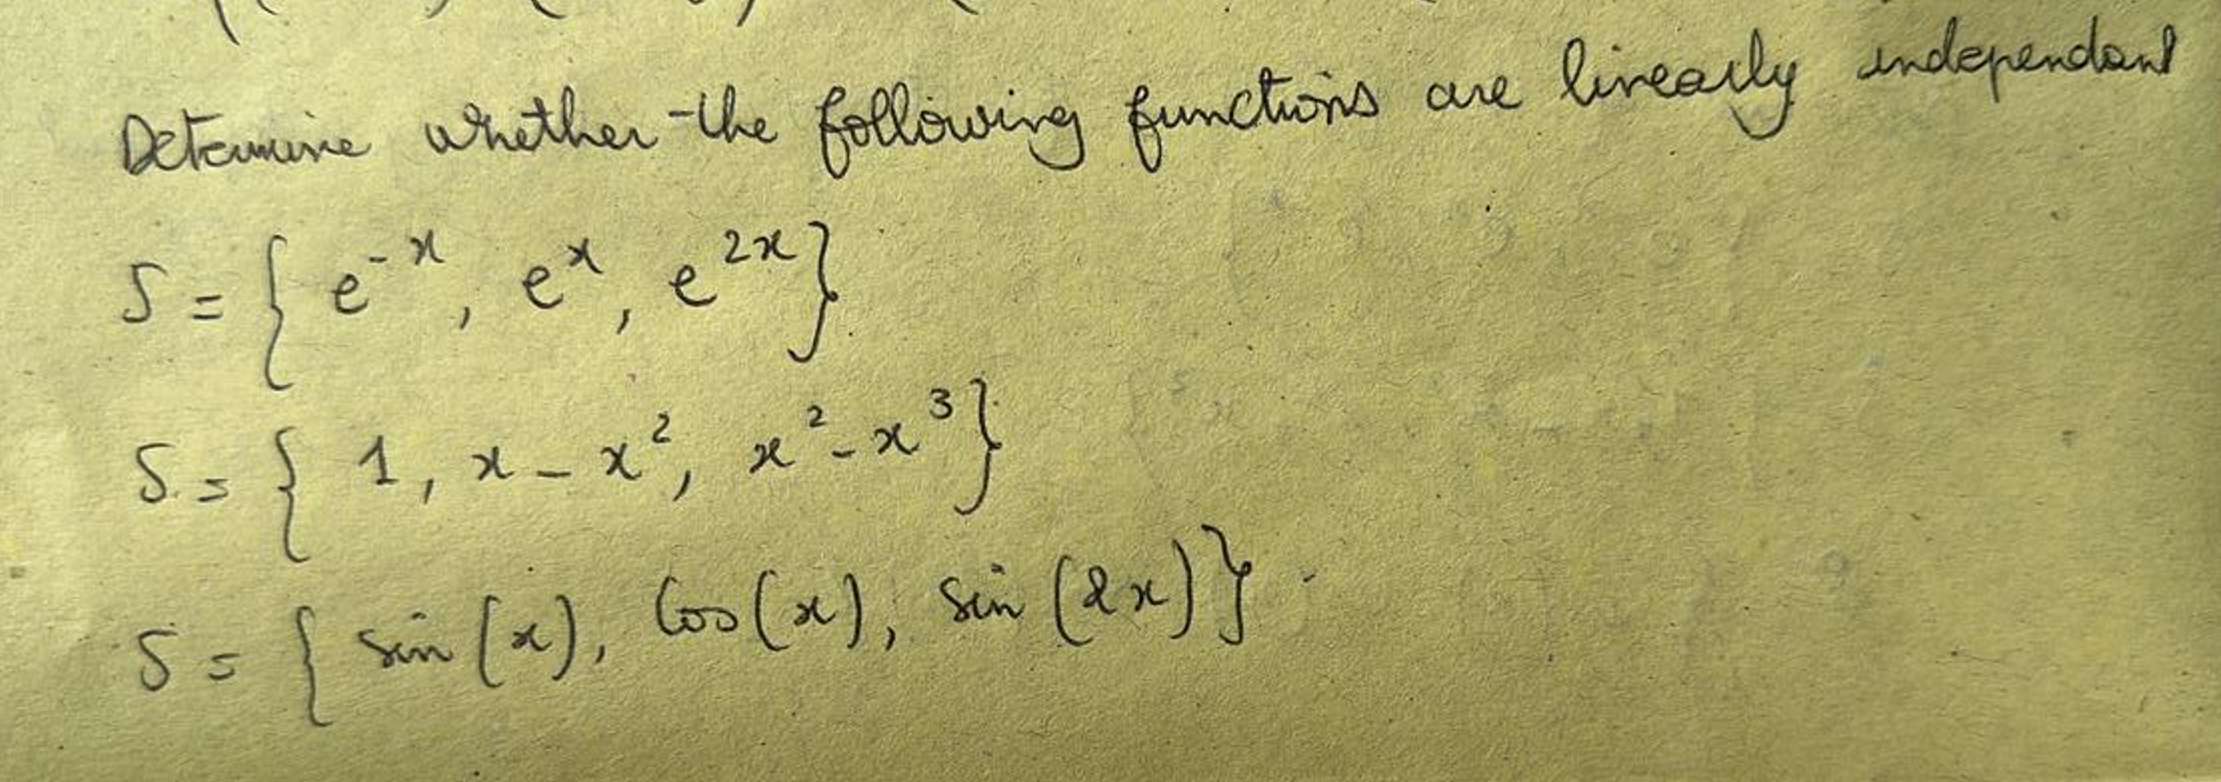 Determine whether the following functions are linearly independant
S = { e^{-x}, e^{x}, e^{2x} }
S = { 1, x - x², x² - x³ }
S = { sin(x), Cos(x), sin(2x) }